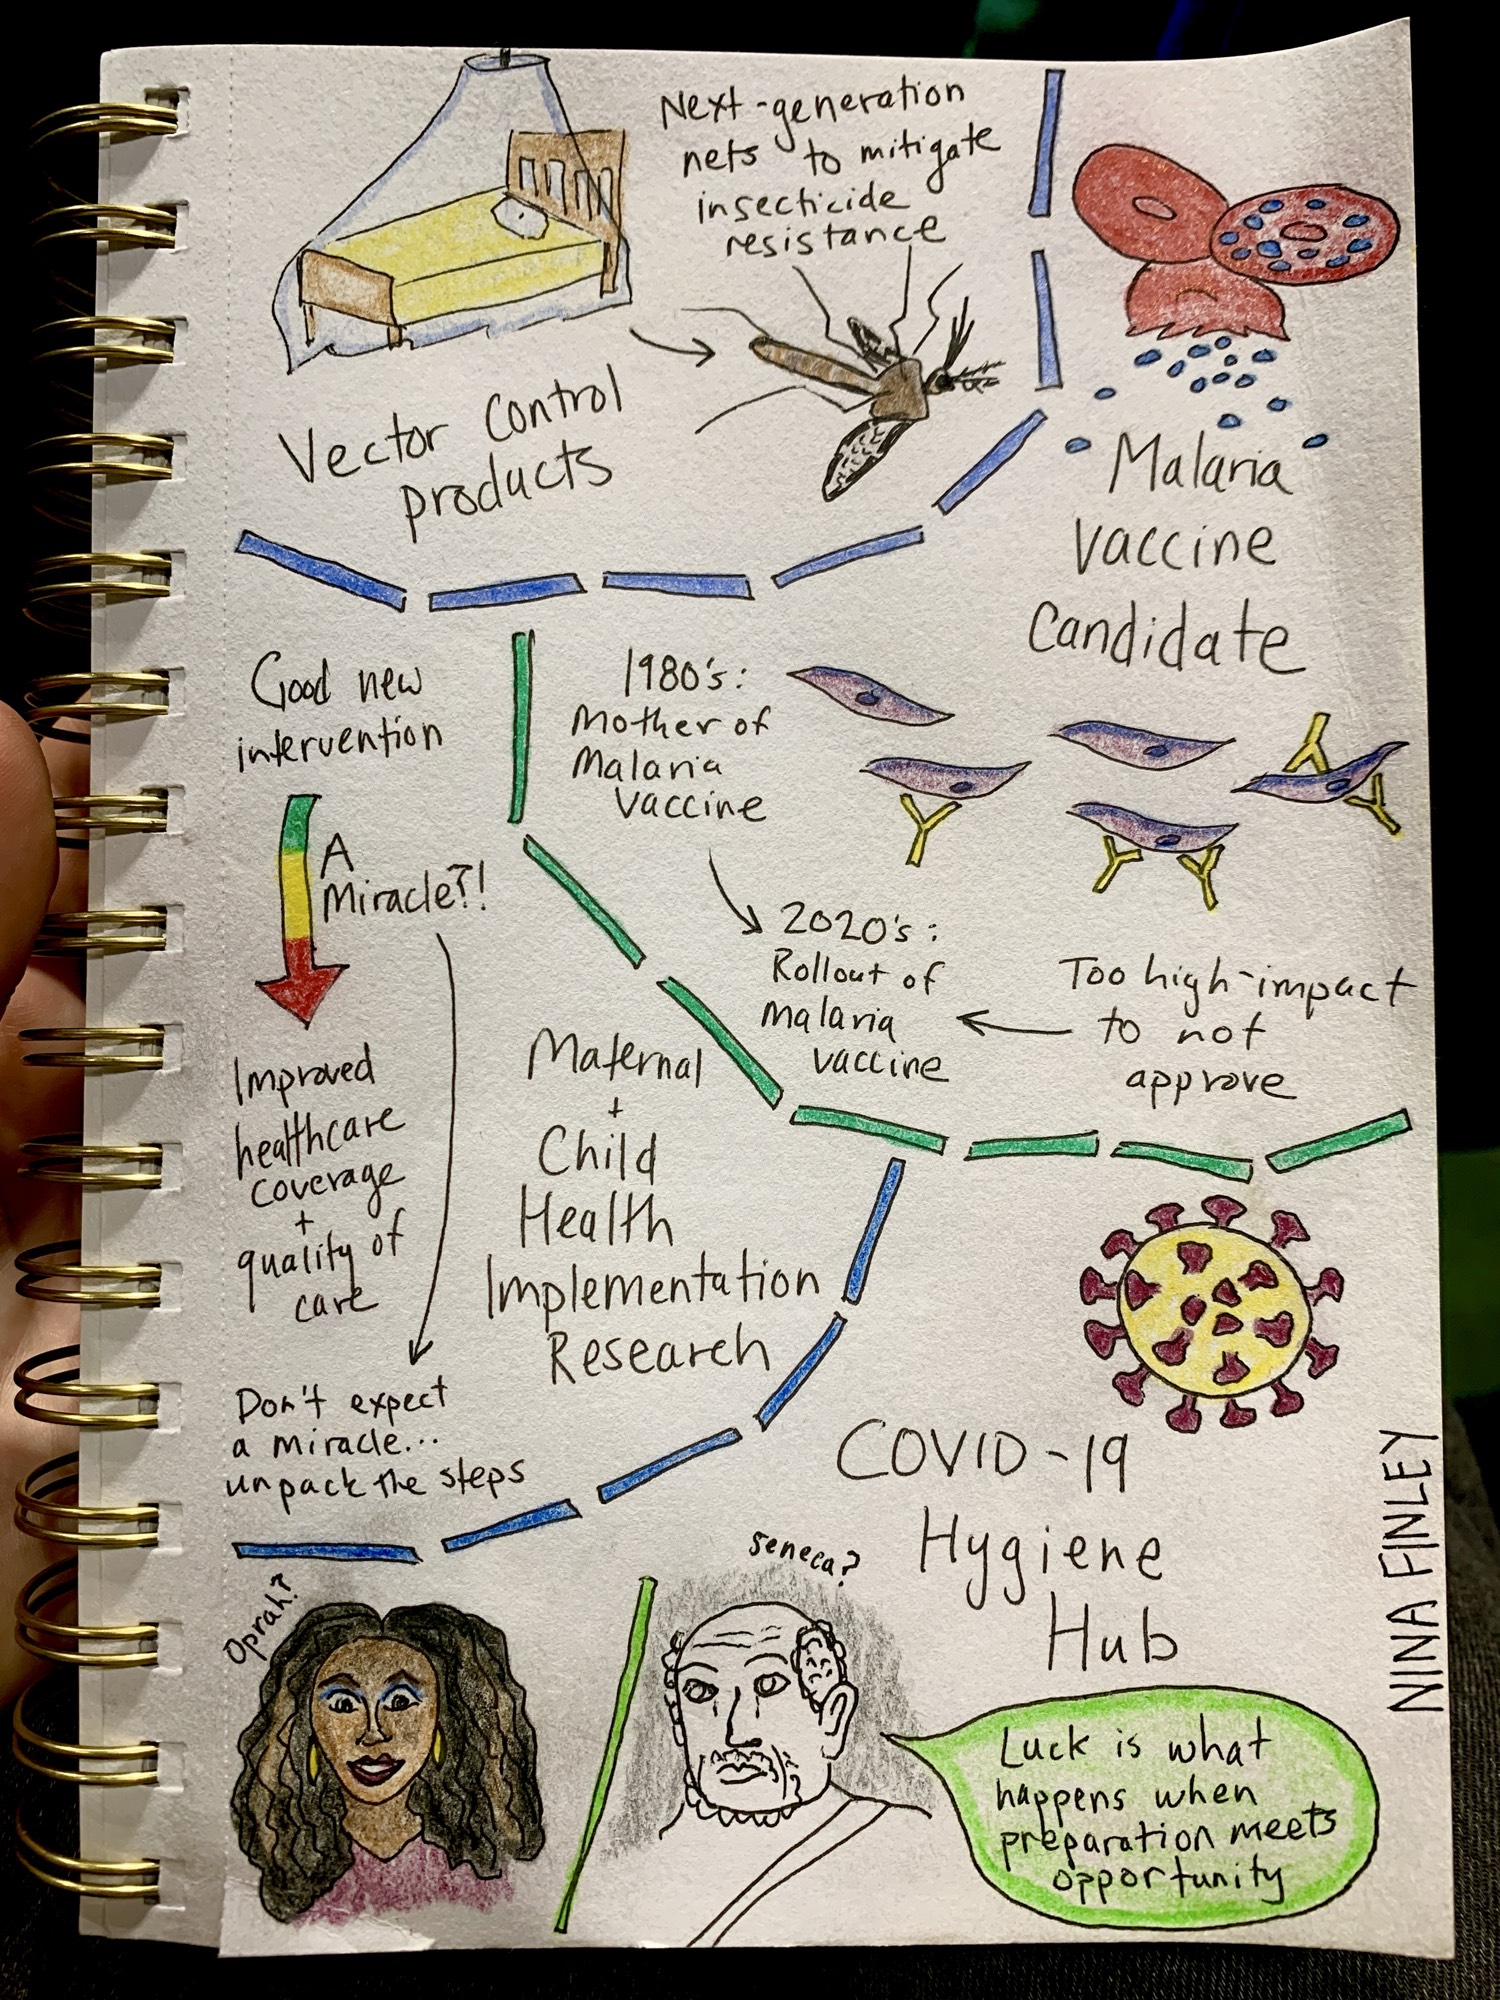 Next-generation
nets to mitigate
insecticide
resistance
Vector Control
products
Malaria
Vaccine
Candidate
Good new
intervention
A
Miracle?!
Improved
healthcare
coverage
+
quality of
care
Don't expect
a miracle...
unpack the steps
1980's:
Mother of
Malaria
Vaccine
2020's:
Rollout of
malaria
vaccine
Too high-impact
to not
approve
Maternal
+
Child
Health
Implementation
Research
COVID-19
Hygiene
Hub
Oprah?
Seneca?
Luck is what
happens when
preparation meets
opportunity
NINA FINLEY